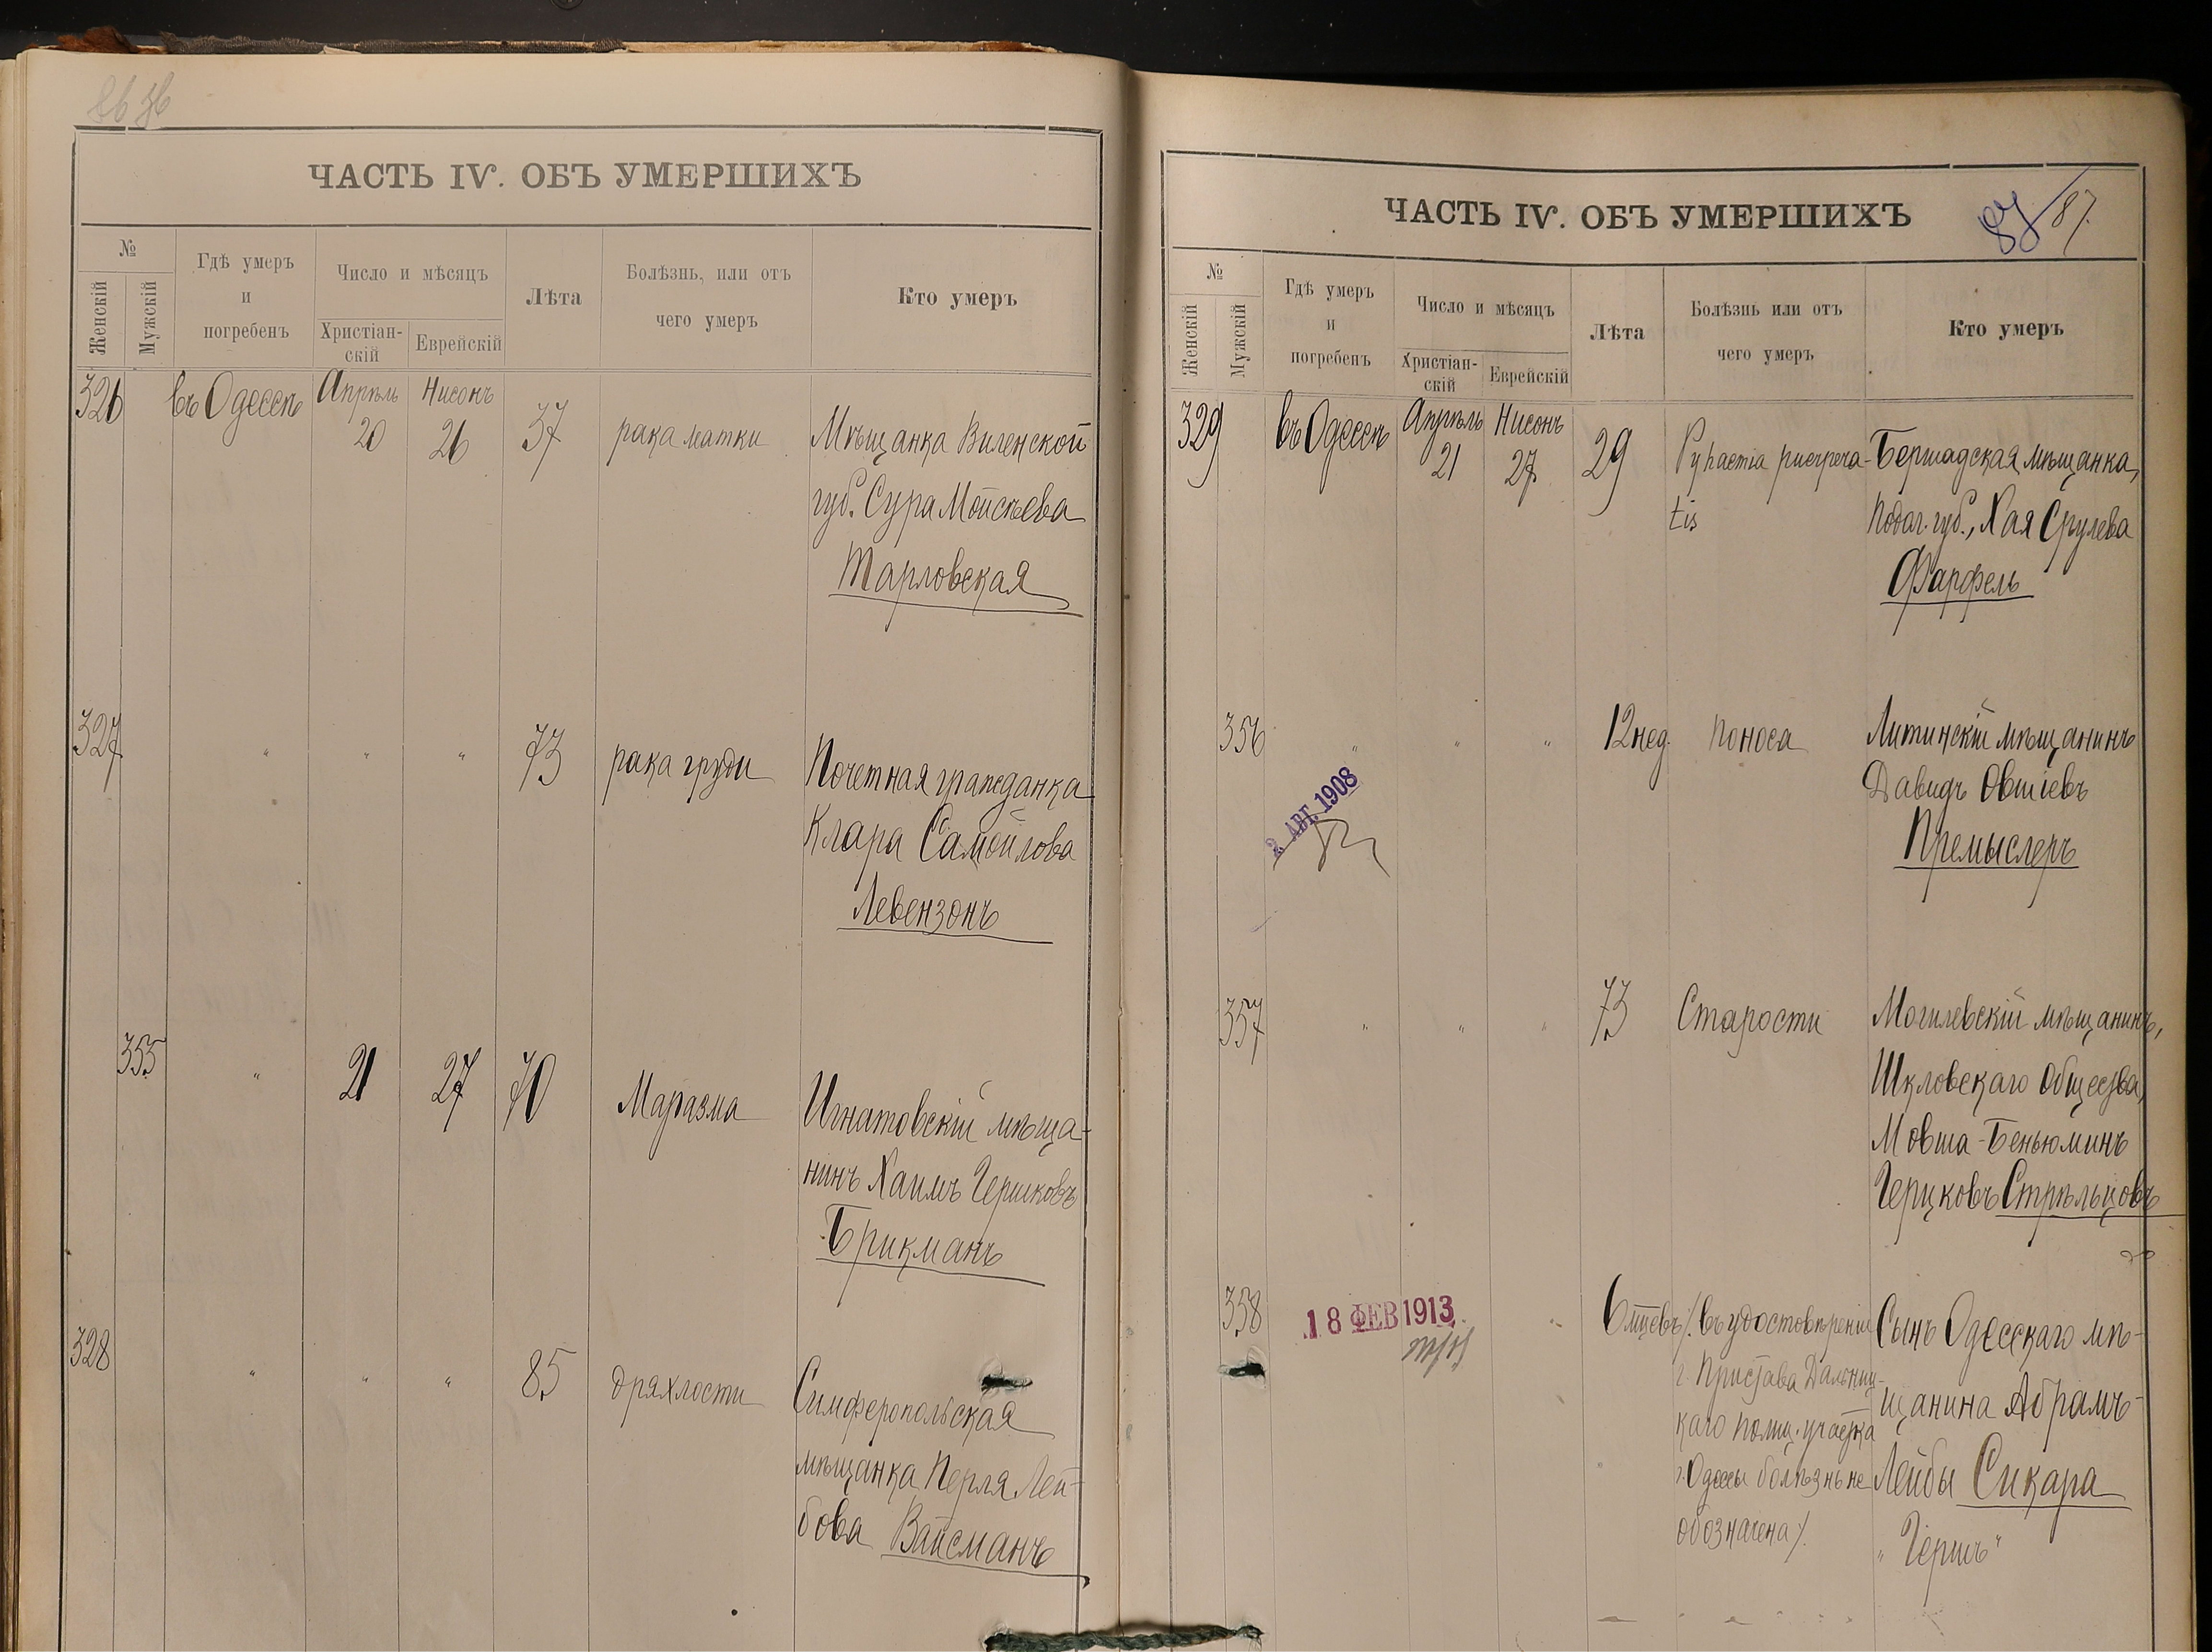 ЧАСТЬ IV. ОБЪ УМЕРШИХЪ
№
Женскій
Мужскій
Гдѣ умеръ
и
погребенъ
Число и мѣсяцъ
Христіан-
скій
Еврейскій
Лѣта
Болѣзнь, или отъ
чего умеръ
Кто умеръ
326
въ Одессѣ
Апрѣль
20
Нисонъ
26
37
рака матки
Мѣщанка Виленской
губ. Сура Мойсѣева
Тарловская
327
"
"
"
73
рака груди
Почетная гражданка
Клара Самойлова
Левензонъ
355
"
21
27
70
Маразма
Игнатовскій мѣща-
нинъ Хаимъ Гершковъ
Брикманъ
328
"
"
"
85
дряхлости
Симферопольская
мѣщанка Перля Лей-
бова Вайсманъ
ЧАСТЬ IV. ОБЪ УМЕРШИХЪ
87
87.
№
Женскій
Мужскій
Гдѣ умеръ
и
погребенъ
Число и мѣсяцъ
Христіан-
скій
Еврейскій
Лѣта
Болѣзнь или отъ
чего умеръ
Кто умеръ
329
въ Одессѣ
Апрѣль
21
Нисонъ
27
29
tis
Бершадская мѣщанка,
Подол. губ., Хая Срулева
Фарфель
356
"
"
"
12 нед.
поноса
Литинскій мѣщанинъ
Давидъ Овшіевъ
Премыслеръ
2 АВГ. 1908
357
"
"
"
73
Старости
Могилевскій мѣщанинъ,
Шкловскаго Общества,
Мовша-Беньюминъ
Герцковъ Стрѣльцовъ
358
18 ФЕВ 1913
"
6 мцевъ
/. въ удостовѣреніи
г. Пристава Дальниц-
каго полиц. участка
г. Одессы болѣзнь не
обозначена /.
Сынъ Одесскаго мѣ-
щанина Абрамъ-
Лейбы Сикара
"Гершъ"